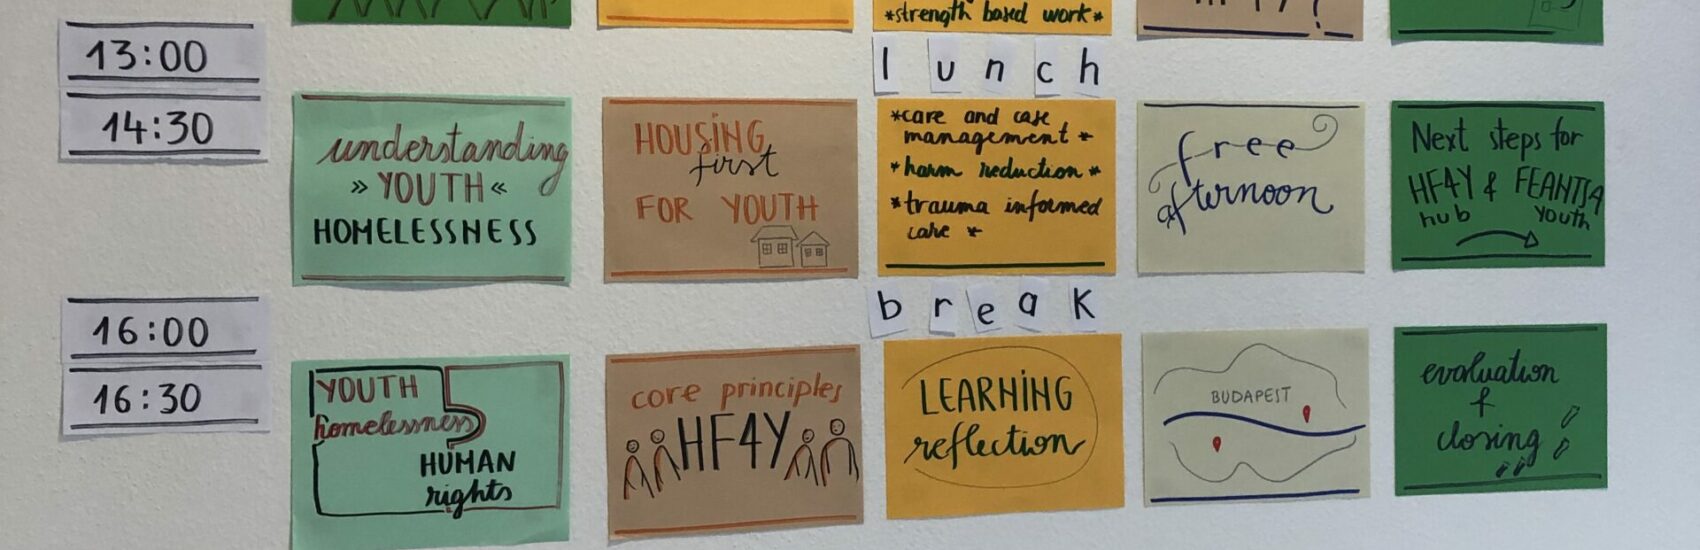 *strength based work*
HF4Y?
13:00
lunch
14:30
understanding
» YOUTH «
HOMELESSNESS
HOUSING
first
FOR YOUTH
*care and case
management *
*harm reduction *
*trauma informed
care *
free
afternoon
Next steps for
HF4Y & FEANTSA
hub youth
16:00
break
16:30
YOUTH
homelessness
HUMAN
rights
core principles
HF4Y
LEARNING
reflection
BUDAPEST
evaluation
+
closing